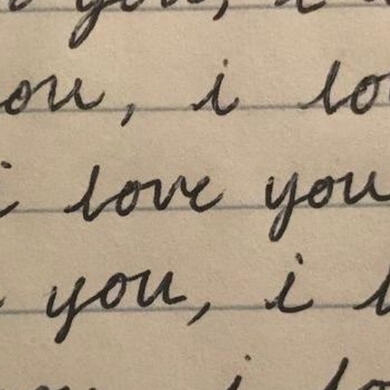 you, i
ou, i lo
i love you
you, i l
i lo